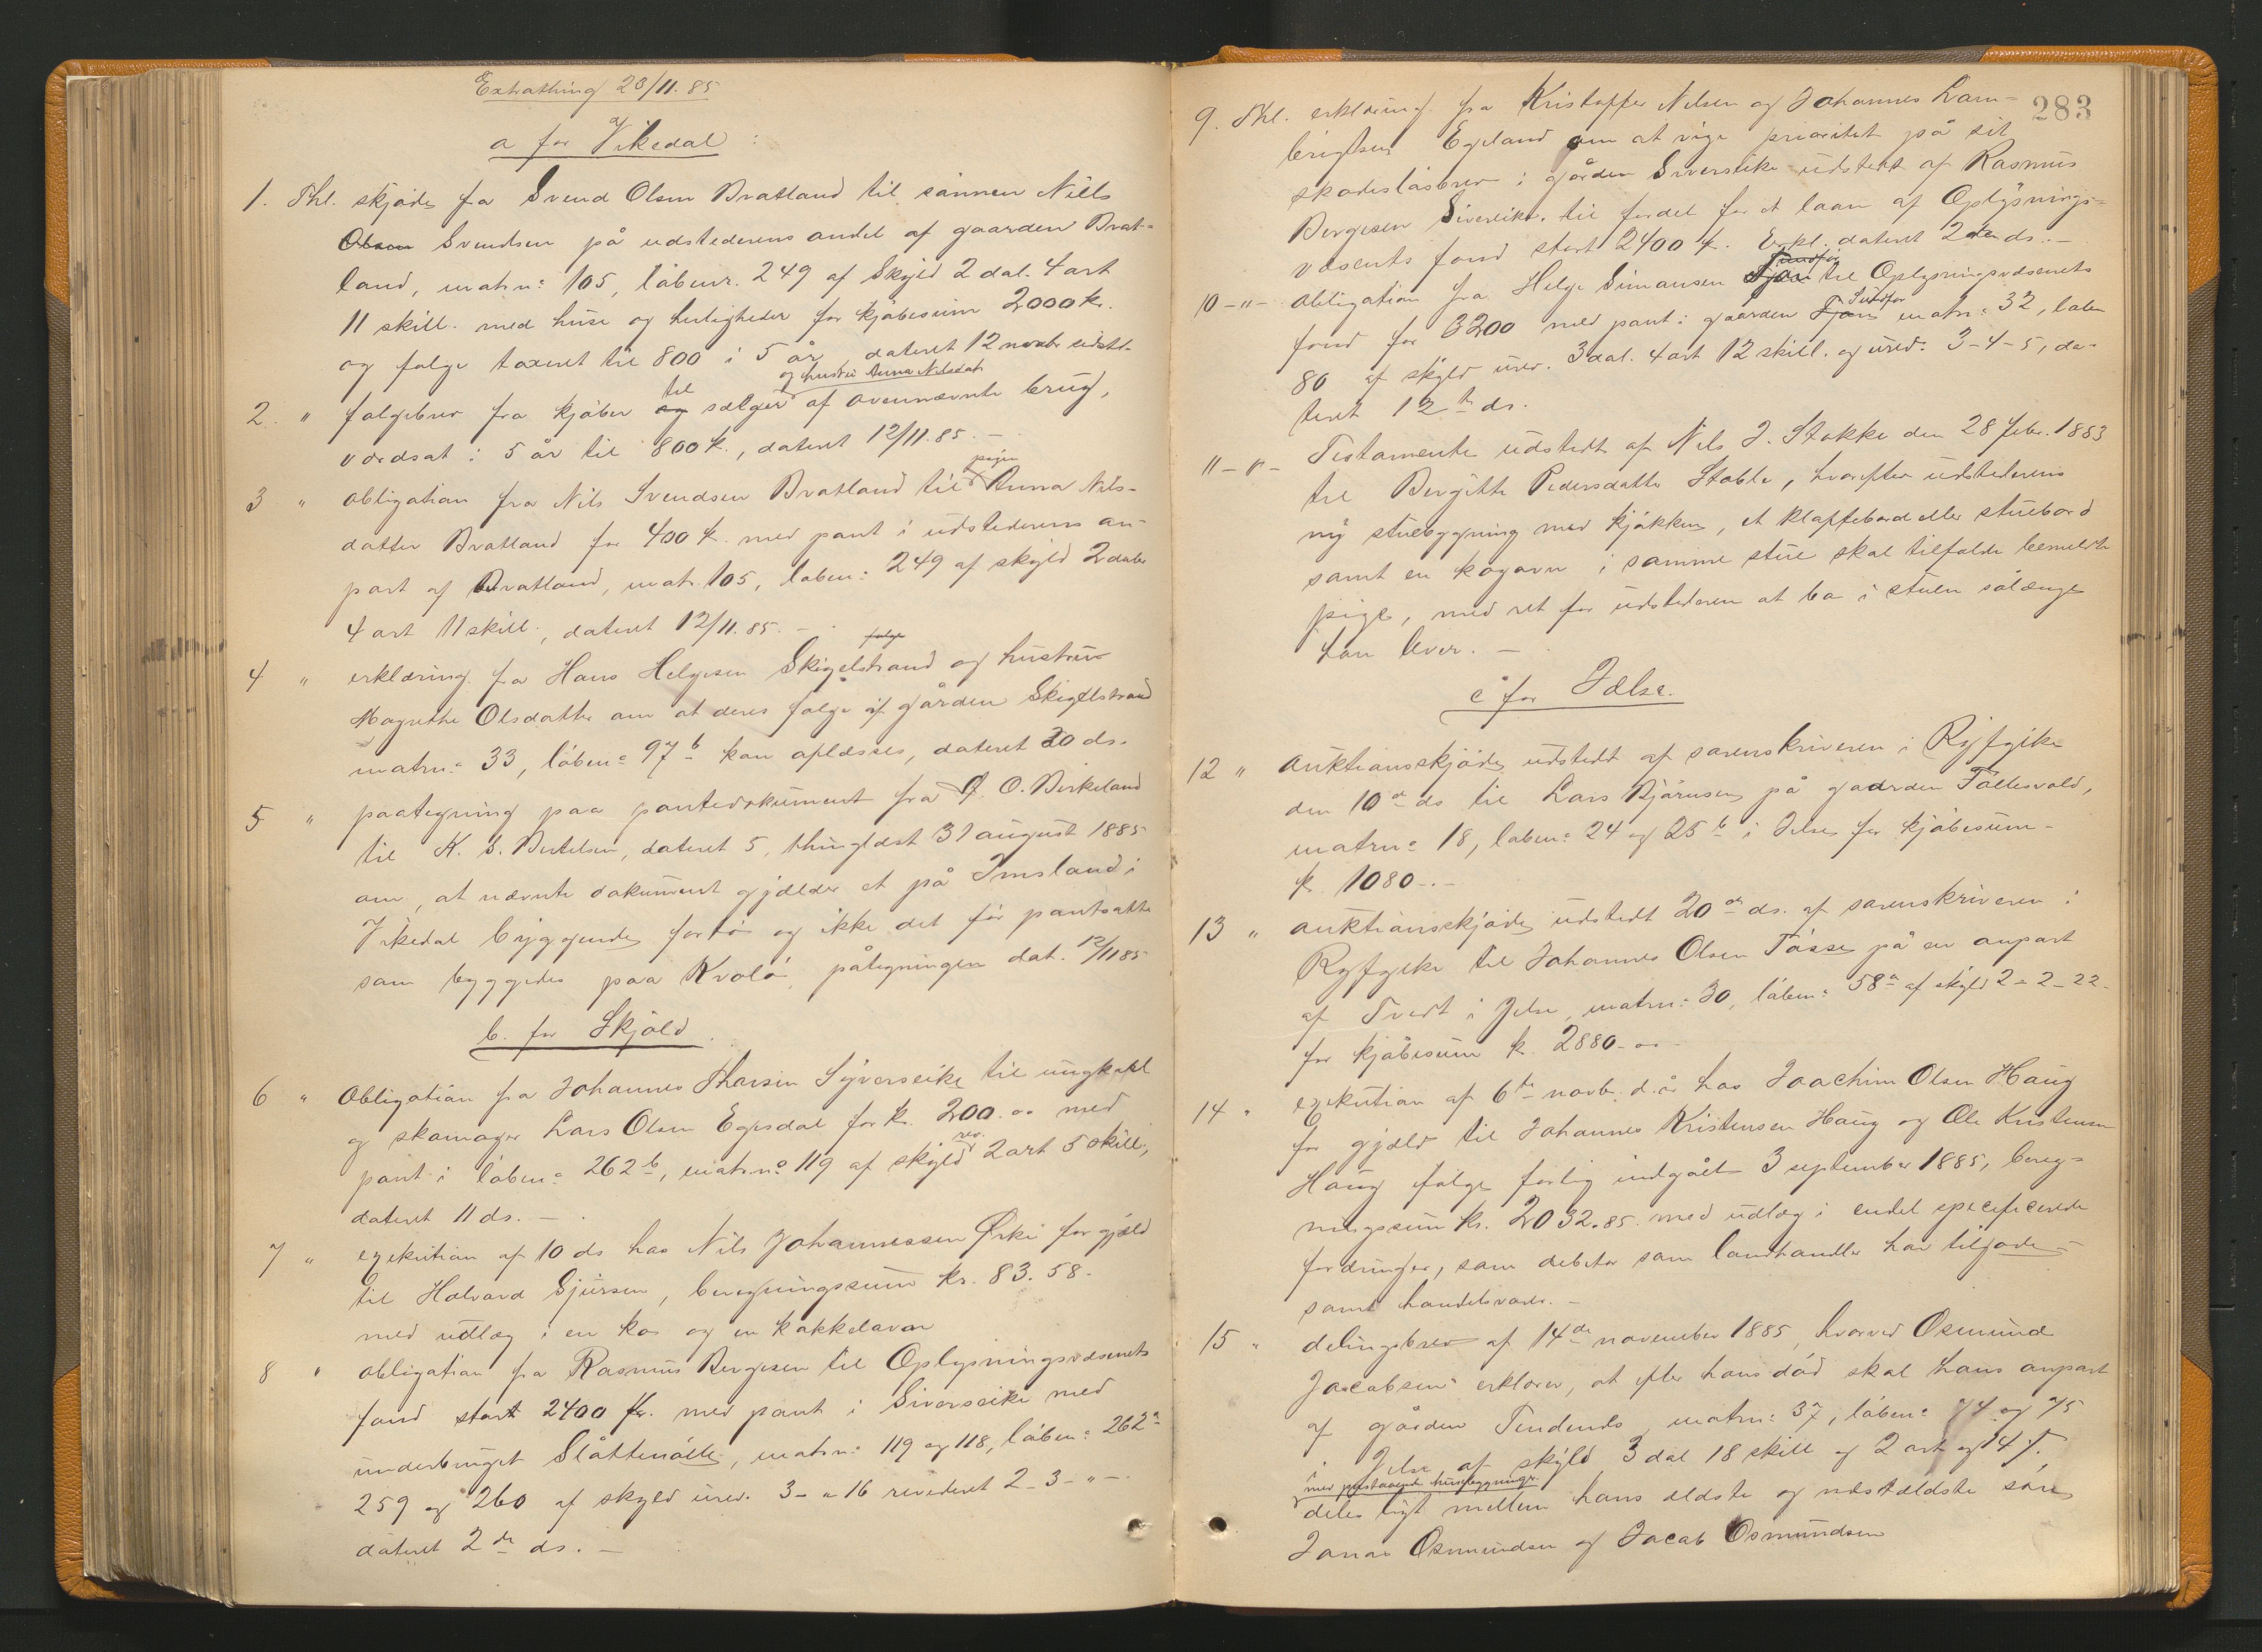 Extrathing 23/11.85
a for Vikedal :
1. Thl. skjöde fra Svend Olsen Bratland til sönnen Nills
Olsen Svendsen på udstederens andel af gaarden Brat-
land, matrn: 105, löbenr. 249 af Skyld 2 dal. 4 ort
11 skill. med huse og herligheder for kjöbesum 2000 kr.
og folge taxeret til 800 i 5 år, dateret 12 novbr sidstl.
og hustru Anna Nilsdatr
2. " folgebrev fra kjöber og til sælger af ovennævnte brug,
værdsat i 5 år til 800 k., dateret 12/11.85.-
3 " obligation fra Nils Svendsen Bratland til pigen Anna Nils-
datter Bratland for 400 k. med pant i udstederens an-
part af Bratland, matr. 105, loben: 249 af skyld 2 daler
4 ort 11 skill., dateret 12/11.85.-
folge
4 " erklæring fra Hans Helgesen Skigelstrand og hustru
Magrethe Olsdatter om at deres folge af gården Skigelstrand
matrn: 33, löben: 97 b kan aflæses, dateret 20 ds.
5 " paategning paa pantedokument fra O. Birkeland
til K. S. Bertelsen, dateret 5, thinglæst 31 august 1885
om, at nævnte dokument gjælder et på Imsland i
Vikedal byggende fartöi og ikke det för pantsatte
som byggedes paa Kvalö, påtegningen dat. 12/11 85
b. for Skjold.
6 " Obligation fra Johannes Thorsen Syverseike til ungkarl
og skomager Lars Olsen Egesdal for k. 200.00 med
pant i löben: 262 b, matrno 119 af skyld rev. 2 ort 5 skill,
dateret 11 ds.-
7 " exekution af 10 ds hos Nils Johannessen Örke for gjæld
til Halvard Sjursen, beregningssum kr. 83.58.
med udlæg i en ko og en kakkelovn
8 " obligation fra Rasmus Bergesen til Oplysningsvæsenets
fond stort 2400 kr. med pant i Siverseike med
underbruget Slåttenölle, matrn: 119 og 118, löben: 262 a
259 og 260 af skyld urev. 3 - " 16 revideret 2-3-"-.
dateret 2 de ds.-
283
9. Thl. erklæring fra Kristoffer Nilsen og Johannes Lam-
brigtsen Egeland om at vige prioritet på sit
skadeslösbrev i gården Siverseike udstedt af Rasmus
Bergesen Siverseike til fordel for et laan af Oplysnings-
væsenets fond stort 2400 k. Erkl. dateret 2den ds.-
10 - " - obligation fra Helge Simonsen til Oplysningsvæsenets
fond for 3200 med pant i gaarden matrn: 32, löben
80 af skyld urev. 3 dal. 4 ort 12 skill. og urev. 3-4-5, da-
teret 12 te ds.
11 - " - Testamente udstedt af Nils J. Stokke den 28 febr. 1883
til Bergitte Pedersdatter Stokke, hvorefter udstederens
ny stuebygning med kjökken, et klaffebord eller stuebord
samt en kogovn i samme stue skal tilfalde bemeldte
pige, med ret for udstederen at bo i stuen sålænge
han lever.-
c for Jælse.
12 " auktionsskjöde udstedt af sorenskriveren i Ryfylke
den 10 de ds til Lars Björnsen på gaarden Fallesvold,
matrn: 18, löben: 24 og 25 b i Jelse for kjöbesum-
k. 1080.-
13 " auktionsskjöde udstedt 20 de ds. af sorenskriveren i
Ryfylke til Johannes Olsen Tösse på en anpart
af Tvedt i Jelse, matrn: 30, löben: 58 a af skyld 2-2-22.
for kjöbesum k. 2880-00-
14 " exekution af 6 te novb. d. å. hos Joachim Olsen Haug
for gjæld til Johannes Kristensen Haug og Ole Kristensen
Haug ifölge forlig indgået 3 september 1885, bereg-
ningssum kr. 2032.85. med udlæg i endel specificerede
fordringer, som debitor som landhandler har tilgode
samt handelsvarer.-
15 " delingsbrev af 14 de november 1885, hvorved Osmund
Jacobsen erklærer, at efter hans död skal hans anpart
af gården Tendenæs matrn: 37, löben: 74 og 75
i Jelse af skyld 3 dal 18 skill og 2 ort og 14 s.
med påstaaende husebygninger
deles ligt mellem hans ældste og næstældste sön
Jonas Osmundsen og Jacob Osmundsen